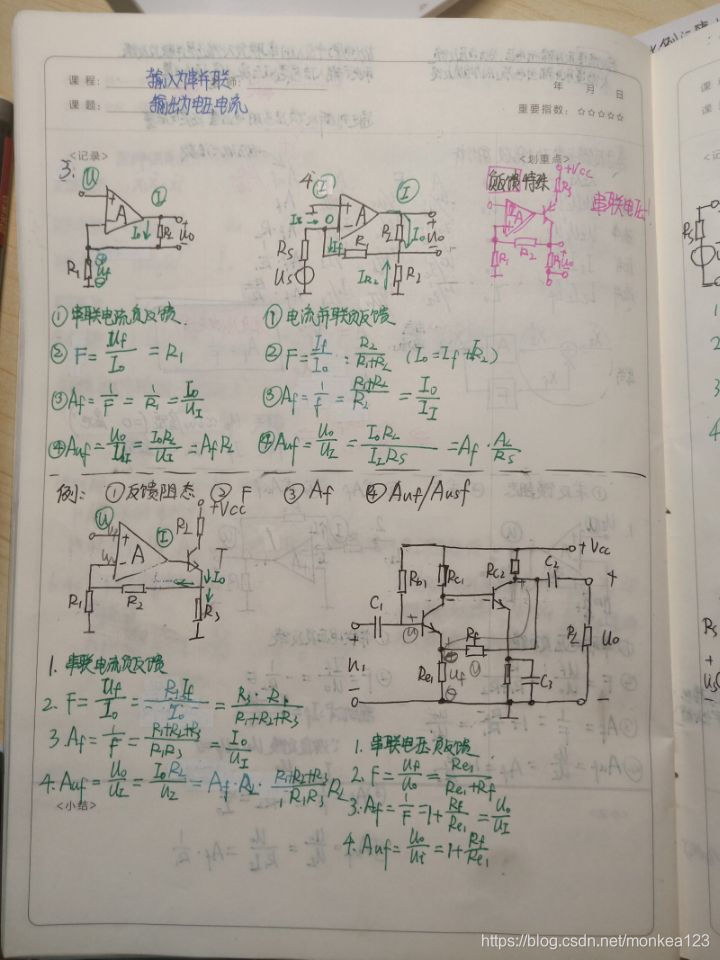 课程：
输入为串并联
师：
课题：
输出为电压电流
年 月 日
重要指数：☆☆☆☆☆
<记录>
<划重点>
3.
U
I
A
I₀
RL
U₀
R₁
Uf
4.
I
I
A
If
R
RL
I₀
U₀
RS
US
IR₂
R₂
负反馈特殊
+Vcc
串联电压!
A
R₂
R₁
U₀
①串联电流负反馈
②F=Uf/I₀=R₁
③Af=1/F=1/R₁=I₀/UI
④Auf=U₀/UI=I₀RL/UI=AfRL
①电流并联负反馈
②F=If/I₀=R₂/(R₁+R₂)
③Af=1/F=(R₁+R₂)/R₂=I₀/II
④Auf=U₀/UI=I₀RL/IIRS=Af·RL/RS
例: ①反馈阻态 ②F ③Af ④Auf/Ausf
U
A
I
RL
+Vcc
T
I₀
R₁
R₂
R₃
+Vcc
Rb₁
Rc₁
Rc₂
C₂
C₁
Rf
Re₁
Uf
C₃
RL
U₀
U₁
1. 串联电流负反馈
2. F=Uf/I₀=R₁If/I₀=R₃·R₁/(R₁+R₂+R₃)
3. Af=1/F=(R₁+R₂+R₃)/R₁R₃=I₀/UI
4. Auf=U₀/UI=I₀RL/UI=Af·RL·(R₁+R₂+R₃)/R₁R₃ RL
1. 串联电压负反馈
2. F=Uf/U₀=Re₁/(Re₁+Rf)
3. Af=1/F=1+Rf/Re₁=U₀/UI
4. Auf=U₀/Ui=1+Rf/Re₁
<小结>
https://blog.csdn.net/monkea123